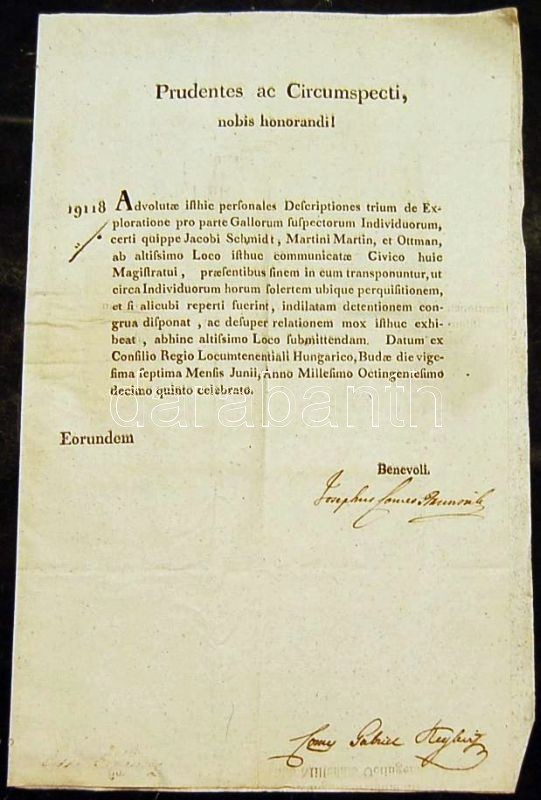 Prudentes ac Circumspecti,
nobis honorandi!
19118 Advolutæ iſthic perſonales Deſcriptiones trium de Ex-
ploratione pro parte Gallorum ſuſpectorum Individuorum,
certi quippe Jacobi Schmidt, Martini Martin, et Ottman,
ab altiſſimo Loco iſthuc communicatæ Civico huic
Magiſtratui, præſentibus ſinem in eum transponuntur, ut
circa Individuorum horum ſolertem ubique perquiſitionem,
et ſi alicubi reperti fuerint, indilatam detentionem con-
grua diſponat, ac deſuper relationem mox iſthuc exhi-
beat, abhinc altiſſimo Loco ſubmittendam. Datum ex
Conſilio Regio Locumtenentiali Hungarico, Budæ die vige-
ſima ſeptima Mensis Junii, Anno Milleſimo Octingenteſimo
decimo quinto celebrato.
darabanth
Eorundem
Benevoli.
Josephus Comes
Comes Gabriel